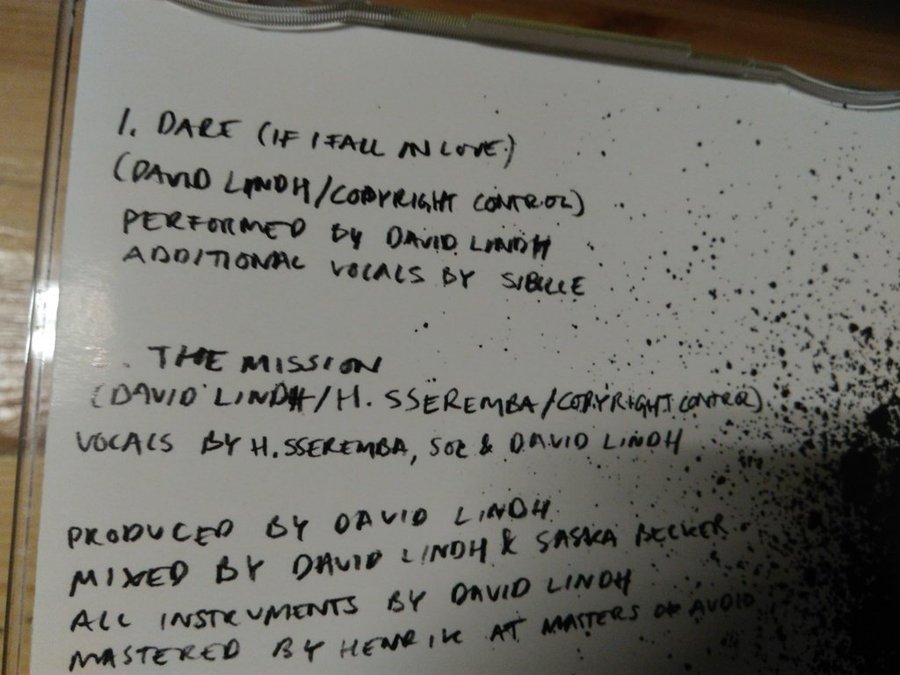 1. DARE (IF I FALL IN LOVE)
(DAVID LINDH/COPYRIGHT CONTROL)
PERFORMED BY DAVID LINDH
ADDITIONAL VOCALS BY SIBILLE
THE MISSION
(DAVID LINDH/H. SSEREMBA/COPYRIGHT CONTROL)
VOCALS BY H. SSEREMBA, SOZ & DAVID LINDH
PRODUCED BY DAVID LINDH
MIXED BY DAVID LINDH & SASKA BECKER
ALL INSTRUMENTS BY DAVID LINDH
MASTERED BY HENRIK AT MASTERS OF AUDIO